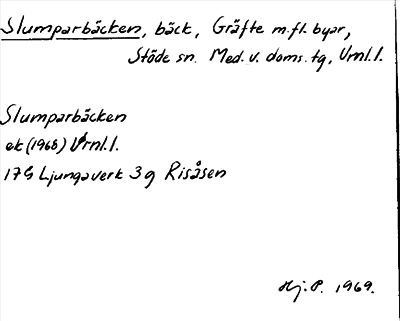 Slumparbäcken, bäck, Gräfte m.fl. byar,
Stöde sn. Med. v. doms. tg, Vrnl.l.
Slumparbäcken
ek (1968) Vrnl.l.
17G Ljungaverk 3g Risåsen
Hj. P. 1969.